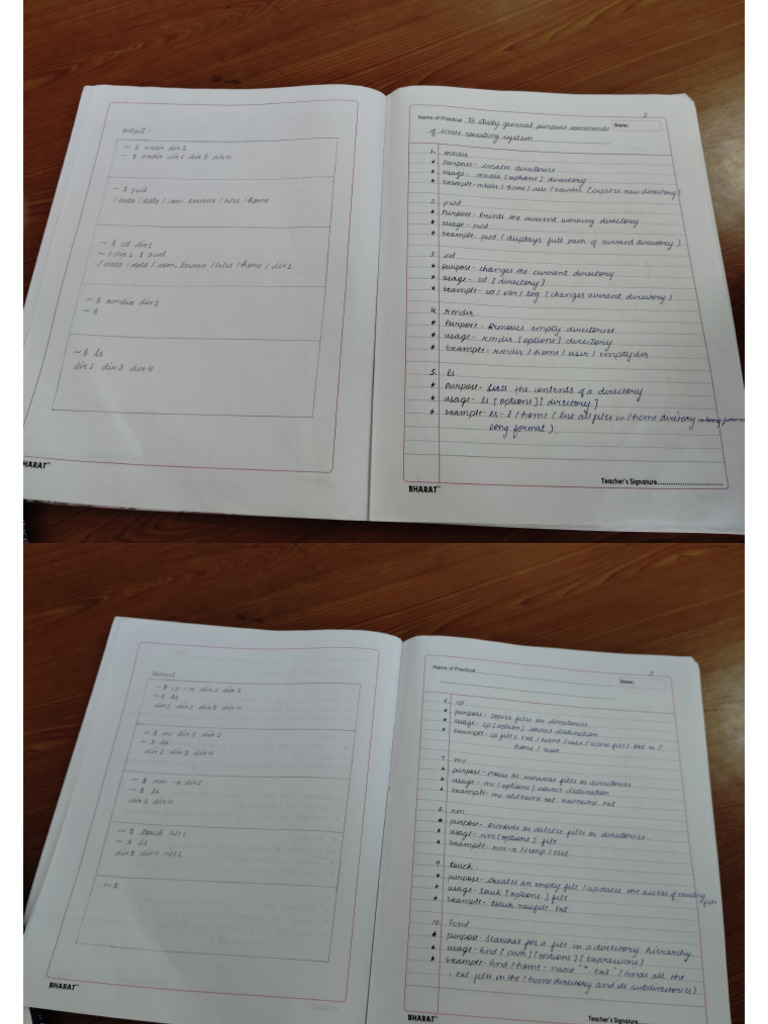 Output -
~ $ mkdir dir1
~ $ mkdir dir2 dir3 dir4
~ $ pwd
/ data / data / com. termux / files / home
~ $ cd dir1
~ / dir1 $ pwd
/ data / data / com. termux / files / home / dir1
~ $ rmdir dir1
~ $
~ $ ls
dir2 dir3 dir4
BHARAT
2
Name of Practical To study general purpose commands
Date:
of operating system
1. mkdir
* Purpose - creates directories
* usage - mkdir [options] directory
* Example - mkdir / home / user / (creates new directory)
2. pwd
* Purpose - Prints the current working directory
* usage - pwd
* Example - pwd ( displays full path of current directory )
3. cd
* purpose - changes the current directory
* usage - cd [ directory ]
* Example - cd / var / log ( changes current directory )
4. rmdir
* Purpose - Removes empty directories
* usage - rmdir [options] directory
* Example - rmdir / home / user / emptydir
5. ls
* Purpose - the contents of a directory
* usage - ls [options] [ directory ]
* Example - ls - l / home ( list all files in / home directory in long format
long format ).
Teacher's Signature
BHARAT
Output
~ $ cp - r dir2 dir1
~ $ ls
dir1 dir2 dir3 dir4
~ $ mv dir1 dir2
~ $ ls
dir2 dir3 dir4
~ $ rm - r dir2
~ $ ls
dir3 dir4
~ $ touch
~ $ ls
dir3 dir4
~ $
BHARAT
3
Name of Practical
Date:
6. cp
* purpose - copies files or directories
* usage - cp [option] source destination
* Example - cp file. txt / home / user /
home / user
7. mv
* purpose - Move or renames files or directories
* usage - mv [options] source destination
* Example - mv oldname.txt newname.txt
8. rm
* purpose - Removes or deletes files or directories
* usage - rm [options] file
* Example - rm - r / temp / test
9. touch
* purpose - creates an empty file / updates the access of existing
file
* usage - touch [options] file
* Example - touch newfile. txt
10. Find
* purpose - Searches for a file in a directory hirarchy
* usage - find [ path ] [options] [ expressions]
* Example - find / home - name "*. txt" ( finds all the
. txt files in the / home directory and its subdirectories)
Teacher's Signature
BHARAT